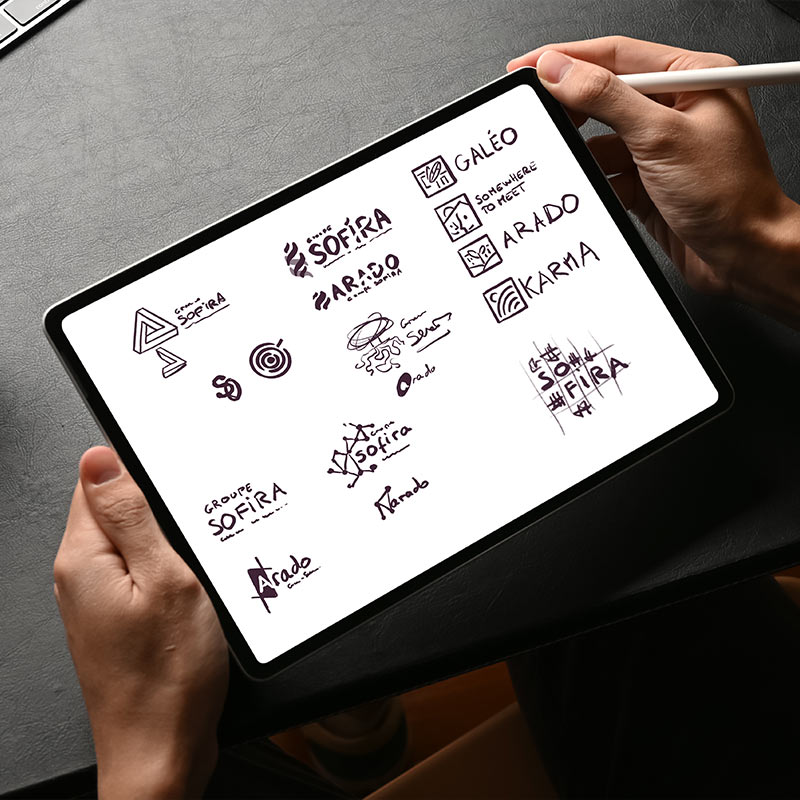 GALÉO
SOMEWHERE
TO MEET
ARADO
KARMA
GROUPE
SOFIRA
ARADO
GROUPE SOFIRA
GROUPE
SOFIRA
SO
Arado
SO
FIRA
Groupe
sofira
Arado
GROUPE
SOFIRA
Arado